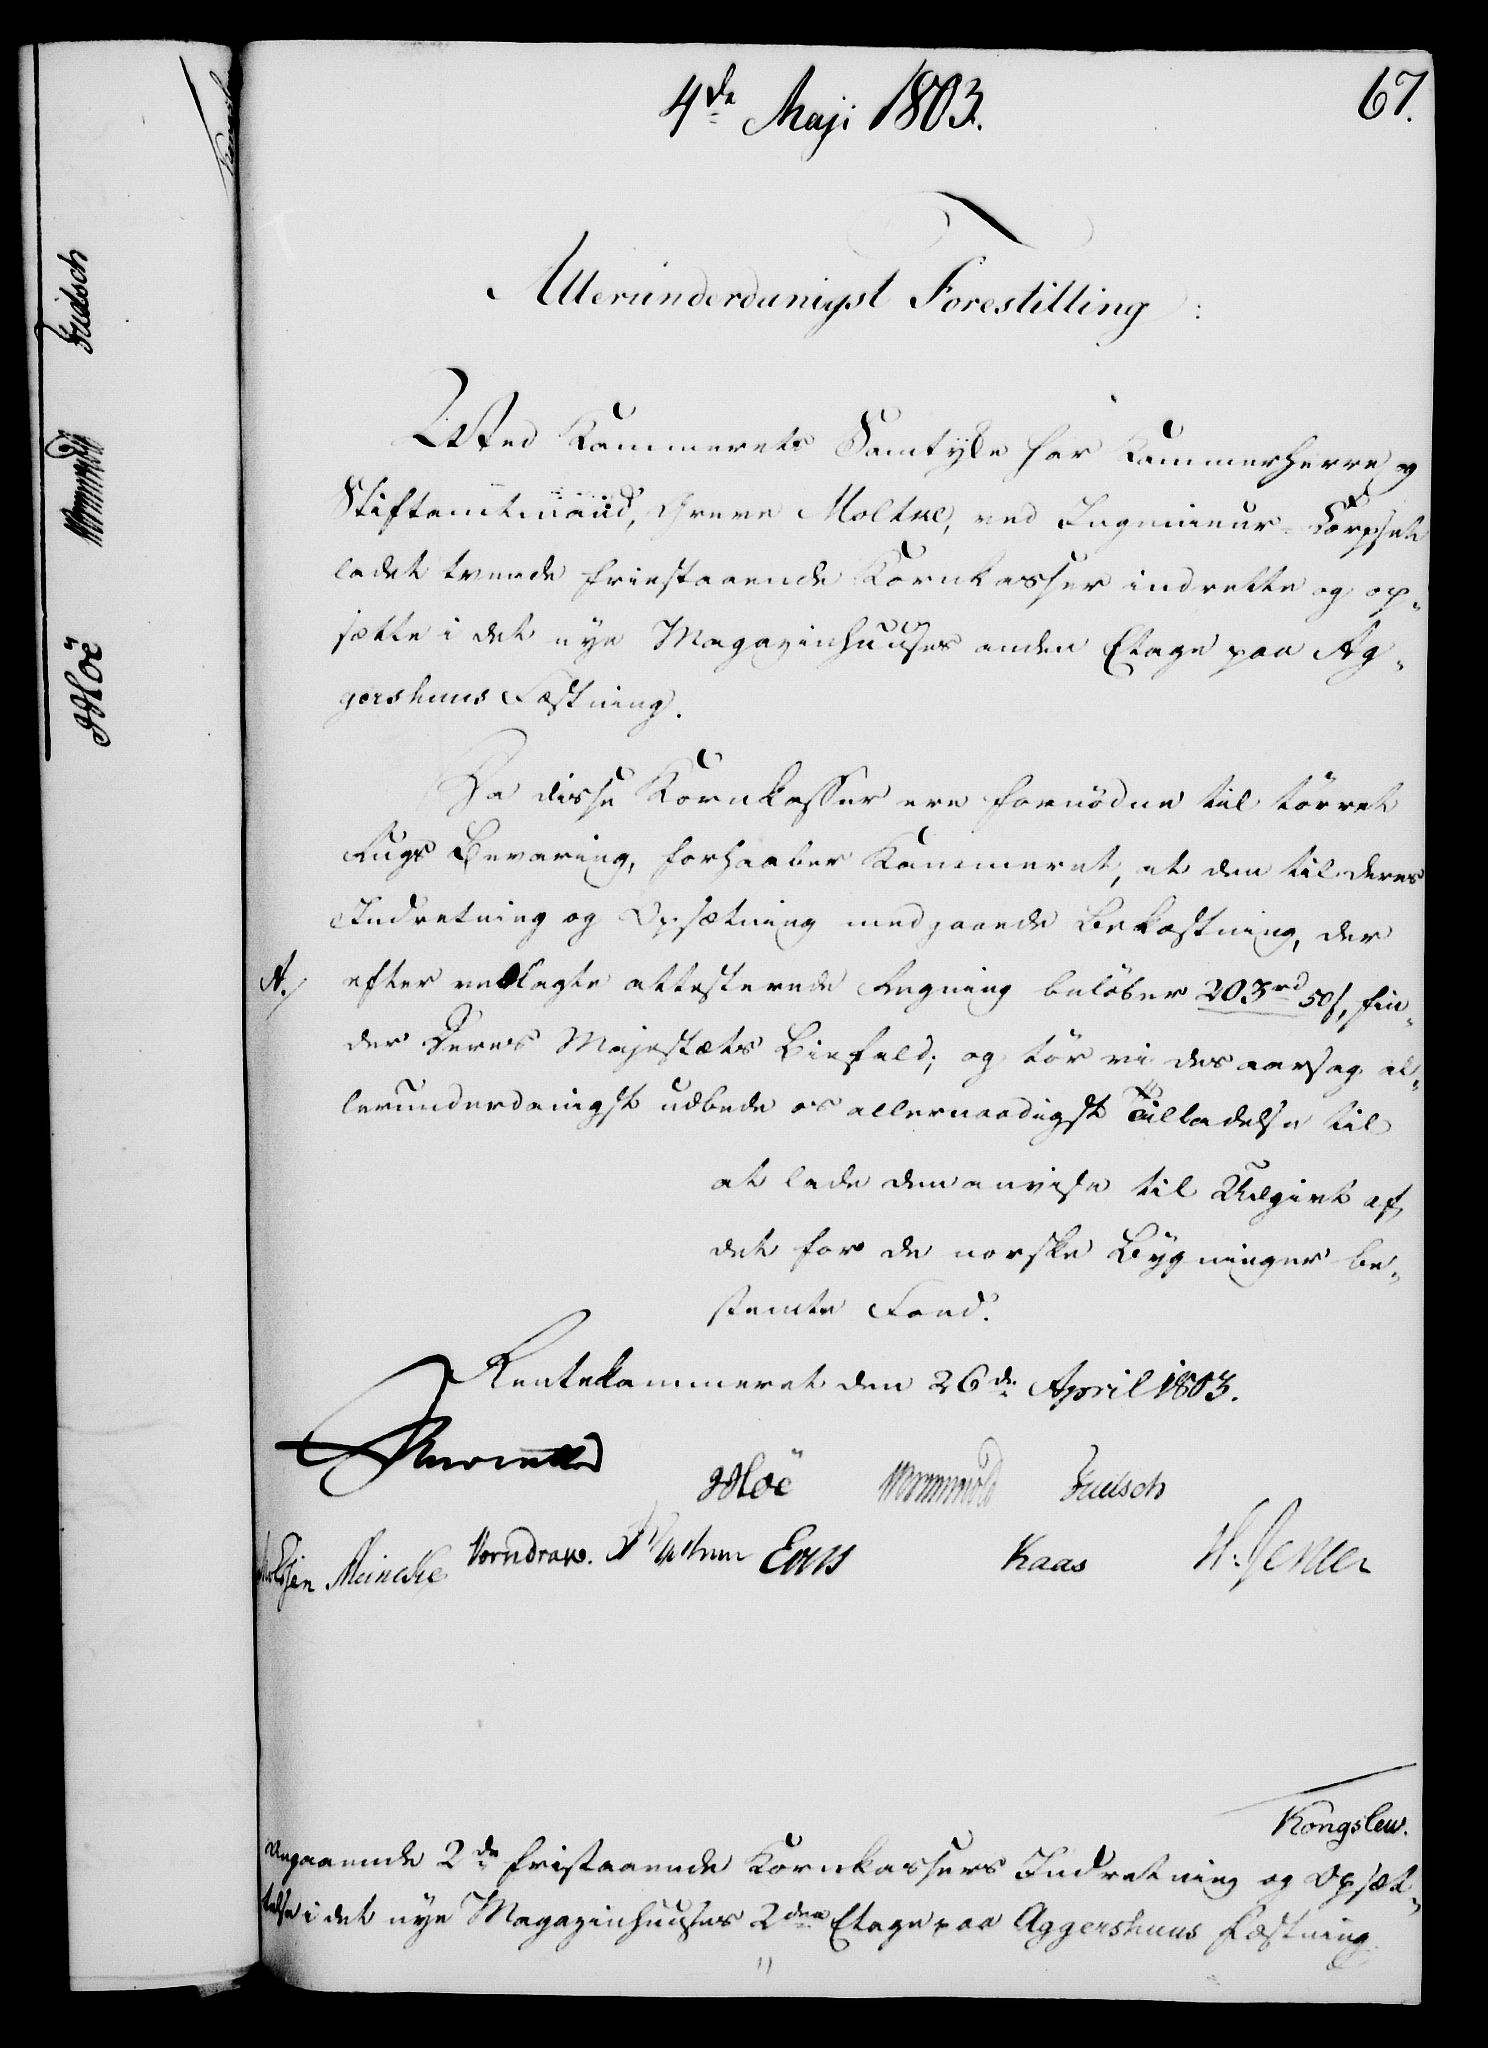 4de Maji 1803.
67.
Allerunderdanigst Forestilling:
Med Kammerets Samtykke har Kammerherre og
Stiftamtmand, Greve Moltke, ved Ingenieur-Corpset
ladet tvende friestaaende Kornkasser indrette og op-
sætte i det nye Magazinhuuses anden Etage paa Ag-
gershuus Fæstning.
Da disse Kornkasser ere fornødne til tørret
Rugs Bevaring, forhaaber Kammeret, at den til deres
Indretning og Opsætning medgaaede Bekostning, der
A./ efter vedlagte attesterede Regning beløber 203rd 50s, fin-
der Deres Majestæts Biefald; og tør vi desaarsag al-
lerunderdanigst udbede os allernaadigst Tilladelse til
at lade den anvise til Udgivt af
det for de norske Bygninger be-
stemte Fond.
Rentekammeret den 26de April 1803.
Reventlow
JHoë Wormskiold Fridsch
Meincke Vorndran. Eers Kaas
Kongslew.
Angaaende 2de fristaaende Kornkassers Indretning og Opsæt-
telse i det nye Magazinhuuses 2den Etage paa Aggershuus Fæstning
Fridsch
Wormskiold
JHoë